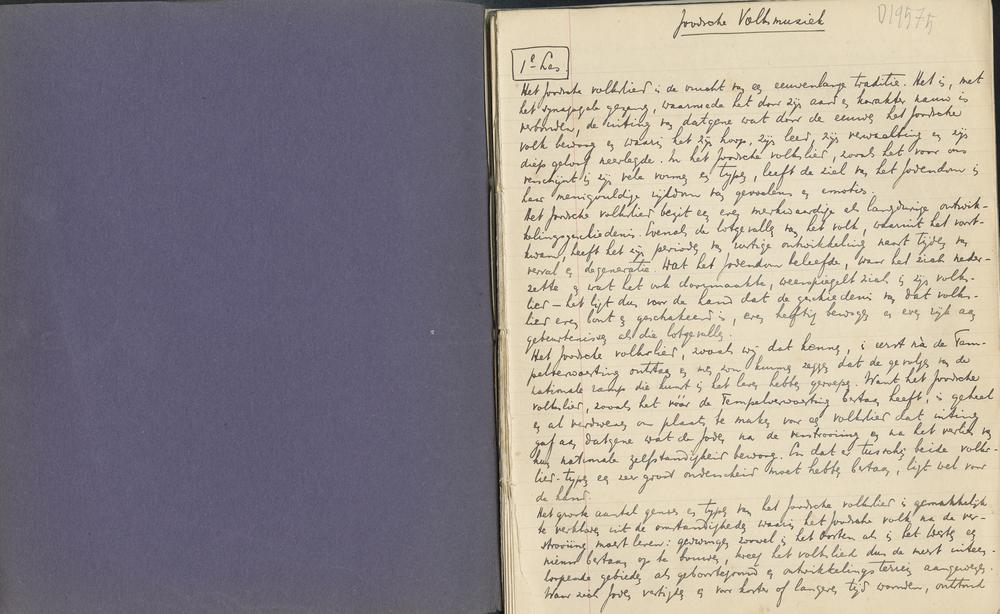 Joodsche Volksmuziek
D19575
1e Les.
Het Joodsche volkslied is de vrucht van een eeuwenlange traditie. Het is, met
het synagogale gezang, waarmede het door zijn aard en karakter nauw is
verbonden, de uiting van datgene wat door de eeuwen het Joodsche
volk bewoog en waarin het zijn hoop, zijn leed, zijn verwachting en zijn
diep geloof neerlegde. In het Joodsche volkslied, zooals het voor ons
verschijnt in zijn vele vormen en typen, leeft de ziel van het Jodendom in
haar menigvuldige rijkdom van gevoelens en emoties.
Het Joodsche volkslied bezit een even merkwaardige als langdurige ontwik-
kelingsgeschiedenis. Evenals de lotgevallen van het volk, waaruit het voort-
kwam, heeft het zijn perioden van rustige ontwikkeling naast tijden van
verval en degeneratie. Wat het Jodendom beleefde, waar het zich neder-
zette en wat het ook doormaakte, weerspiegelt zich in zijn volks-
lied – het ligt dus voor de hand dat de geschiedenis van dat volks-
lied even bont en geschakeerd is, even heftig bewogen en even rijk aan
gebeurtenissen als die lotgevallen.
Het Joodsche volkslied, zooals wij dat kennen, is eerst nà de Tem-
pelverwoesting ontstaan en men zou kunnen zeggen dat de gevolgen van de
nationale ramp die kunst in het leven hebben geroepen. Want het Joodsche
volkslied, zooals het vóór de Tempelverwoesting bestaan heeft, is geheel
en al verdwenen om plaats te maken voor een volkslied dat uiting
gaf aan datgene wat de Joden na de verstrooiing en na het verlies van
hun nationale zelfstandigheid bewoog. En dat er tusschen beide volks-
lied-typen een zeer groot onderscheid moet hebben bestaan, ligt wel voor
de hand.
Het groote aantal genres en typen van het Joodsche volkslied is gemakkelijk
te verklaren uit de omstandigheden waarin het Joodsche volk na de ver-
strooiing moest leven: gedwongen zoowel in het Oosten als in het Westen een
nieuw bestaan op te bouwen, kreeg het volkslied dus de meest uiteen-
loopende gebieden als geboortegrond en ontwikkelingsterrein aangewezen.
Waar zich Joden vestigden en voor korter of langere tijd woonden, ontstond